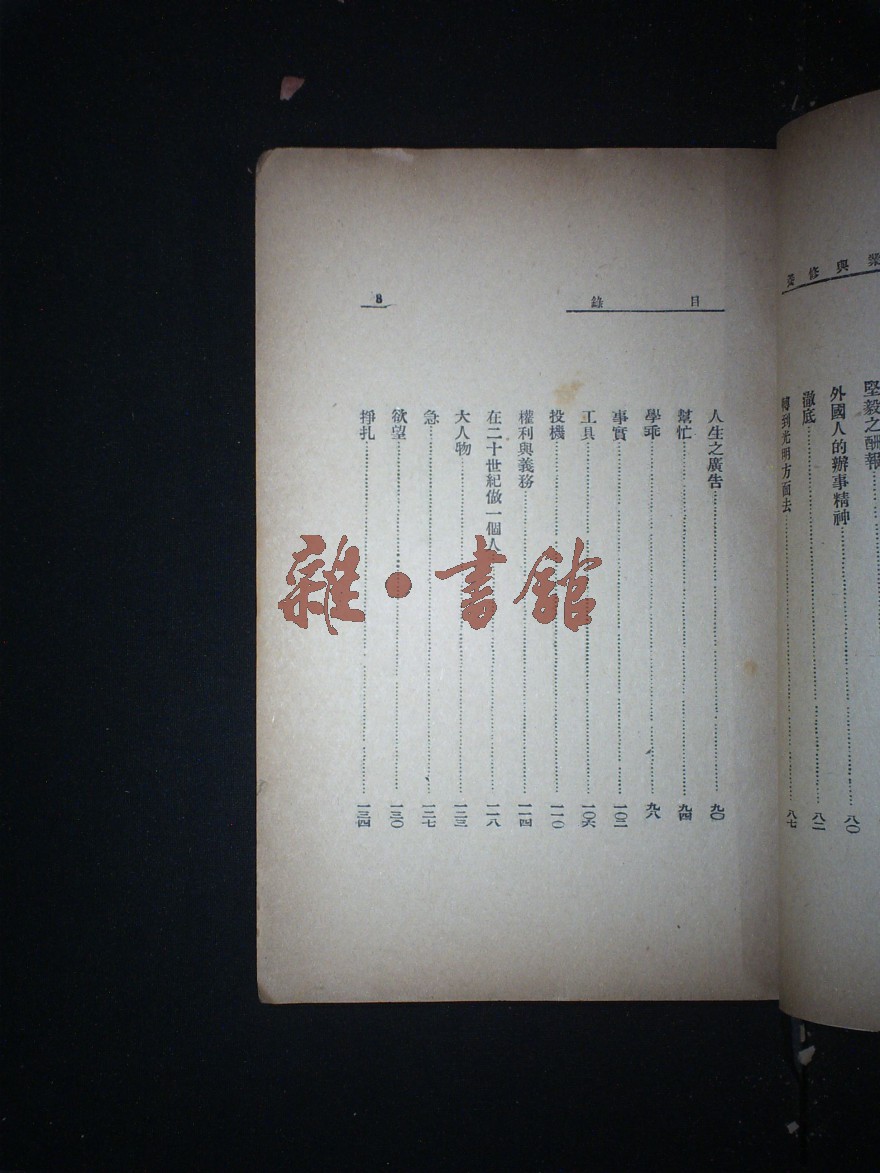 與修養
堅毅之酬報
外國人的辦事精神 八〇
澈底 八二
轉到光明方面去 八七
目錄
8
人生之廣告 九〇
幫忙 九四
學乖 九六
事實 一〇二
工具 一〇六
投機 一一〇
權利與義務 一一四
在二十世紀做一個人 一一八
大人物 一二三
急 一二七
欲望 一三〇
掙扎 一三四
雜·書館